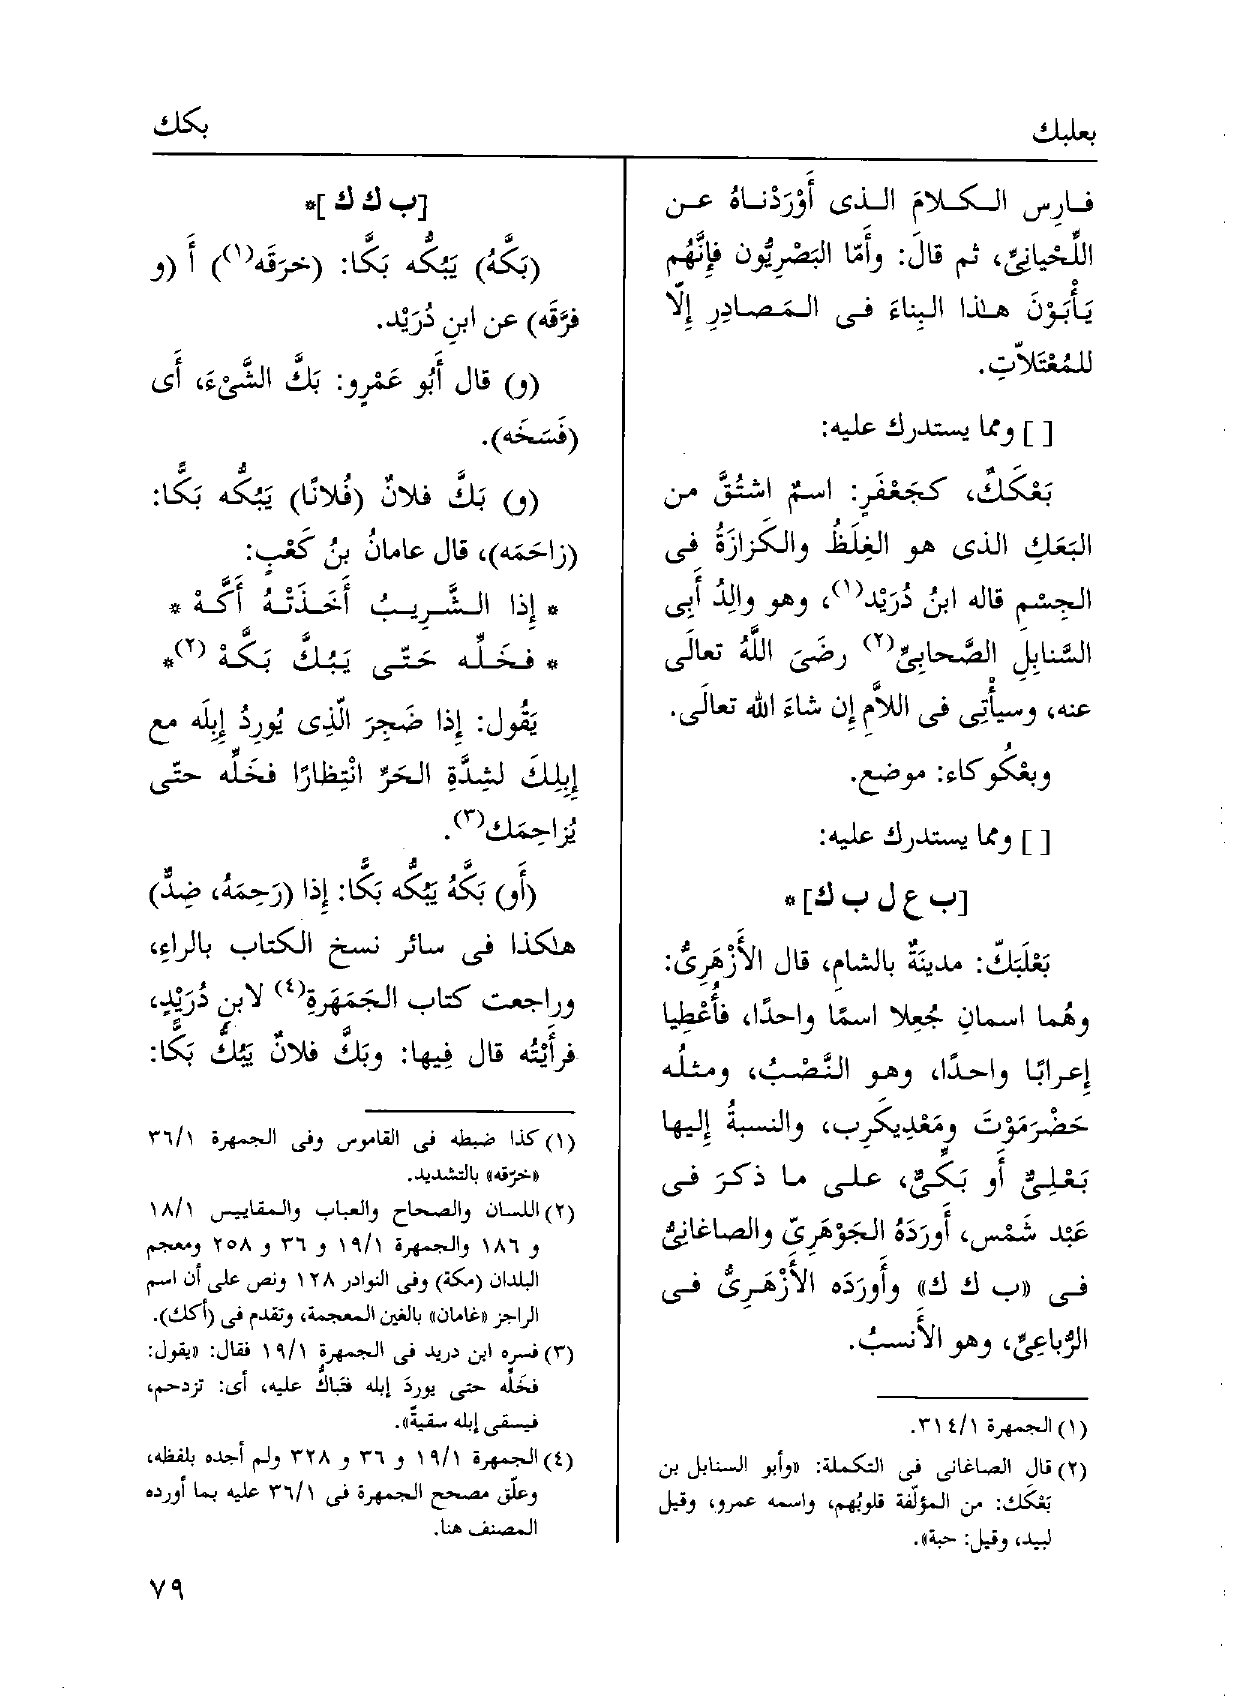 بعلبك
بكك
فارِس الكلامَ الذى أَوْرَدْناهُ عن
اللِّحْيانِىّ، ثم قالَ: وأَمّا البَصْرِيُّون فإِنَّهُم
يَأْبَوْنَ هذا البِناءَ فى المَصادِرِ إِلّا
للمُعْتَلاّتِ.
[ ] ومما يستدرك عليه:
بَعْكَكٌ، كجَعْفَرٍ: اسمٌ اشتُقَّ من
البَعَكِ الذى هو الغِلَظُ والكَزازَةُ فى
الجِسْمِ قاله ابنُ دُرَيْد(١)، وهو والِدُ أَبِى
السَّنابِلِ الصَّحابِىِّ(٢) رضَىَ اللّهُ تعالَى
عنه، وسيأْتِى فى اللاَّمِ إِن شاءَ الله تعالَى.
وبعْكُوكاء: موضع.
[ ] ومما يستدرك عليه:
[ب ع ل ب ك]*
بَعْلَبَكّ: مدينَةٌ بالشامِ، قال الأَزْهَرِىُّ:
وهُما اسمانِ جُعِلا اسمًا واحدًا، فأُعْطِيا
إعرابًا واحدًا، وهو النَّصْبُ، ومثلُه
حَضْرَمَوْتَ ومَعْدِيكَرِب، والنسبةُ إِليها
بَعْلِىٌّ أَو بَكِّىٌّ، على ما ذكرَ فى
عَبْد شَمْس، أَورَدَهُ الجَوْهَرِىّ والصاغانىُّ
فى «ب ك ك» وأَورَدَه الأَزْهَرِىُّ فى
الرُّباعِىِّ، وهو الأَنسبُ.
(١) الجمهرة ٣١٤/١.
(٢) قال الصاغانى فى التكملة: «وأبو السنابل بن
بَعْكَك: من المؤلّفة قلوبُهم، واسمه عمرو، وقيل
لبيد، وقيل: حبة».
[ب ك ك]*
(بَكَّهُ) يَبُكُّه بَكًّا: (خرَقَه(١)) أَ (و
فرَّقَه) عن ابنِ دُرَيْد.
(و) قال أَبُو عَمْرٍو: بَكَّ الشَّىْءَ، أَى
(فَسَخَه).
(و) بَكَّ فلانٌ (فُلانًا) يَبُكُّه بَكًّا:
(زاحَمَه)، قال عامانُ بنُ كَعْبٍ:
* إِذا الشَّرِيبُ أَخَذَتْهُ أَكَّهْ *
* فخَلِّه حَتّى يَبُكَّ بَكَّهْ (٢)*
يَقُول: إِذا ضَجِرَ الّذِى يُورِدُ إِبِلَه مع
إِبِلِكَ لشِدَّةِ الحَرِّ انْتِظارًا فخَلِّه حتّى
يُزاحِمَك(٣).
(أَو) بَكَّهُ يَبُكُّه بَكًّا: إِذا (رَحِمَهُ، ضِدٌّ)
هكذا فى سائر نسخ الكتاب بالراءِ،
وراجعت كتاب الجَمَهَرةِ(٤) لابنِ دُرَيْدٍ،
فرأَيْتُه قال فِيها: وبَكَّ فلانٌ يَبُكُّ بَكًّا:
(١) كذا ضبطه فى القاموس وفى الجمهرة ٣٦/١
«خرّقه» بالتشديد.
(٢) اللسان والصحاح والعباب والمقاييس ١٨/١
و ١٨٦ والجمهرة ١٩/١ و ٣٦ و ٢٥٨ ومعجم
البلدان (مكة) وفى النوادر ١٢٨ ونص على أن اسم
الراجز «غامان» بالغين المعجمة، وتقدم فى (أكك).
(٣) فسره ابن دريد فى الجمهرة ١٩/١ فقال: «يقول:
فخَلِّه حتى يوردَ إبله فتَباكَّ عليه، أى: تزدحم،
فيسقى إبله سقيةً».
(٤) الجمهرة ١٩/١ و ٣٦ و ٣٢٨ ولم أجده بلفظه،
وعلّق مصحح الجمهرة فى ٣٦/١ عليه بما أورده
المصنف هنا.
٧٩